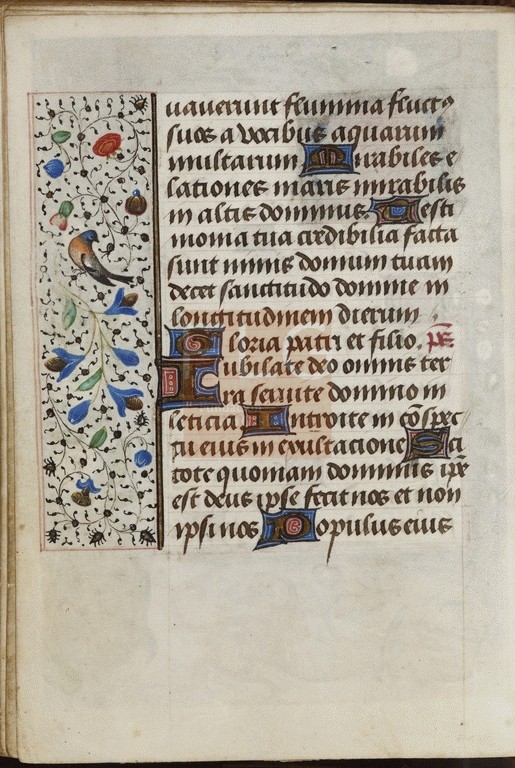 uaverunt flumina fluctꝰ
suos a vocibus aquarum
multarum Mirabiles e
lationes maris mirabilis
in altis dominus. Testi
monia tua credibilia facta
sunt nimis domum tuam
decet sanctitudo domine in
longitudinem dierum.
Gloria patri et filio. ps̄
Iubilate deo omnis ter
ra seruite domino in
leticia Introite in cōspec
tu eius in exultacione Sci
tote quoniam dominus ipe
est deus ipse fecit nos et non
ipsi nos Populus eius